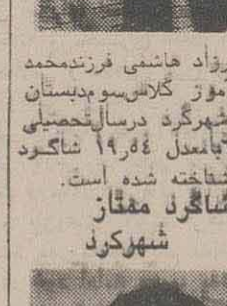 رزاد هاشمی فرزندمحمد
موز کلاس‌سوم‌دبستان
شهرکرد درسال‌تحصیلی
بامعدل ۱۹٫۵٤ شاگرد
شناخته شده است.
شاگرد ممتاز
شهرکرد